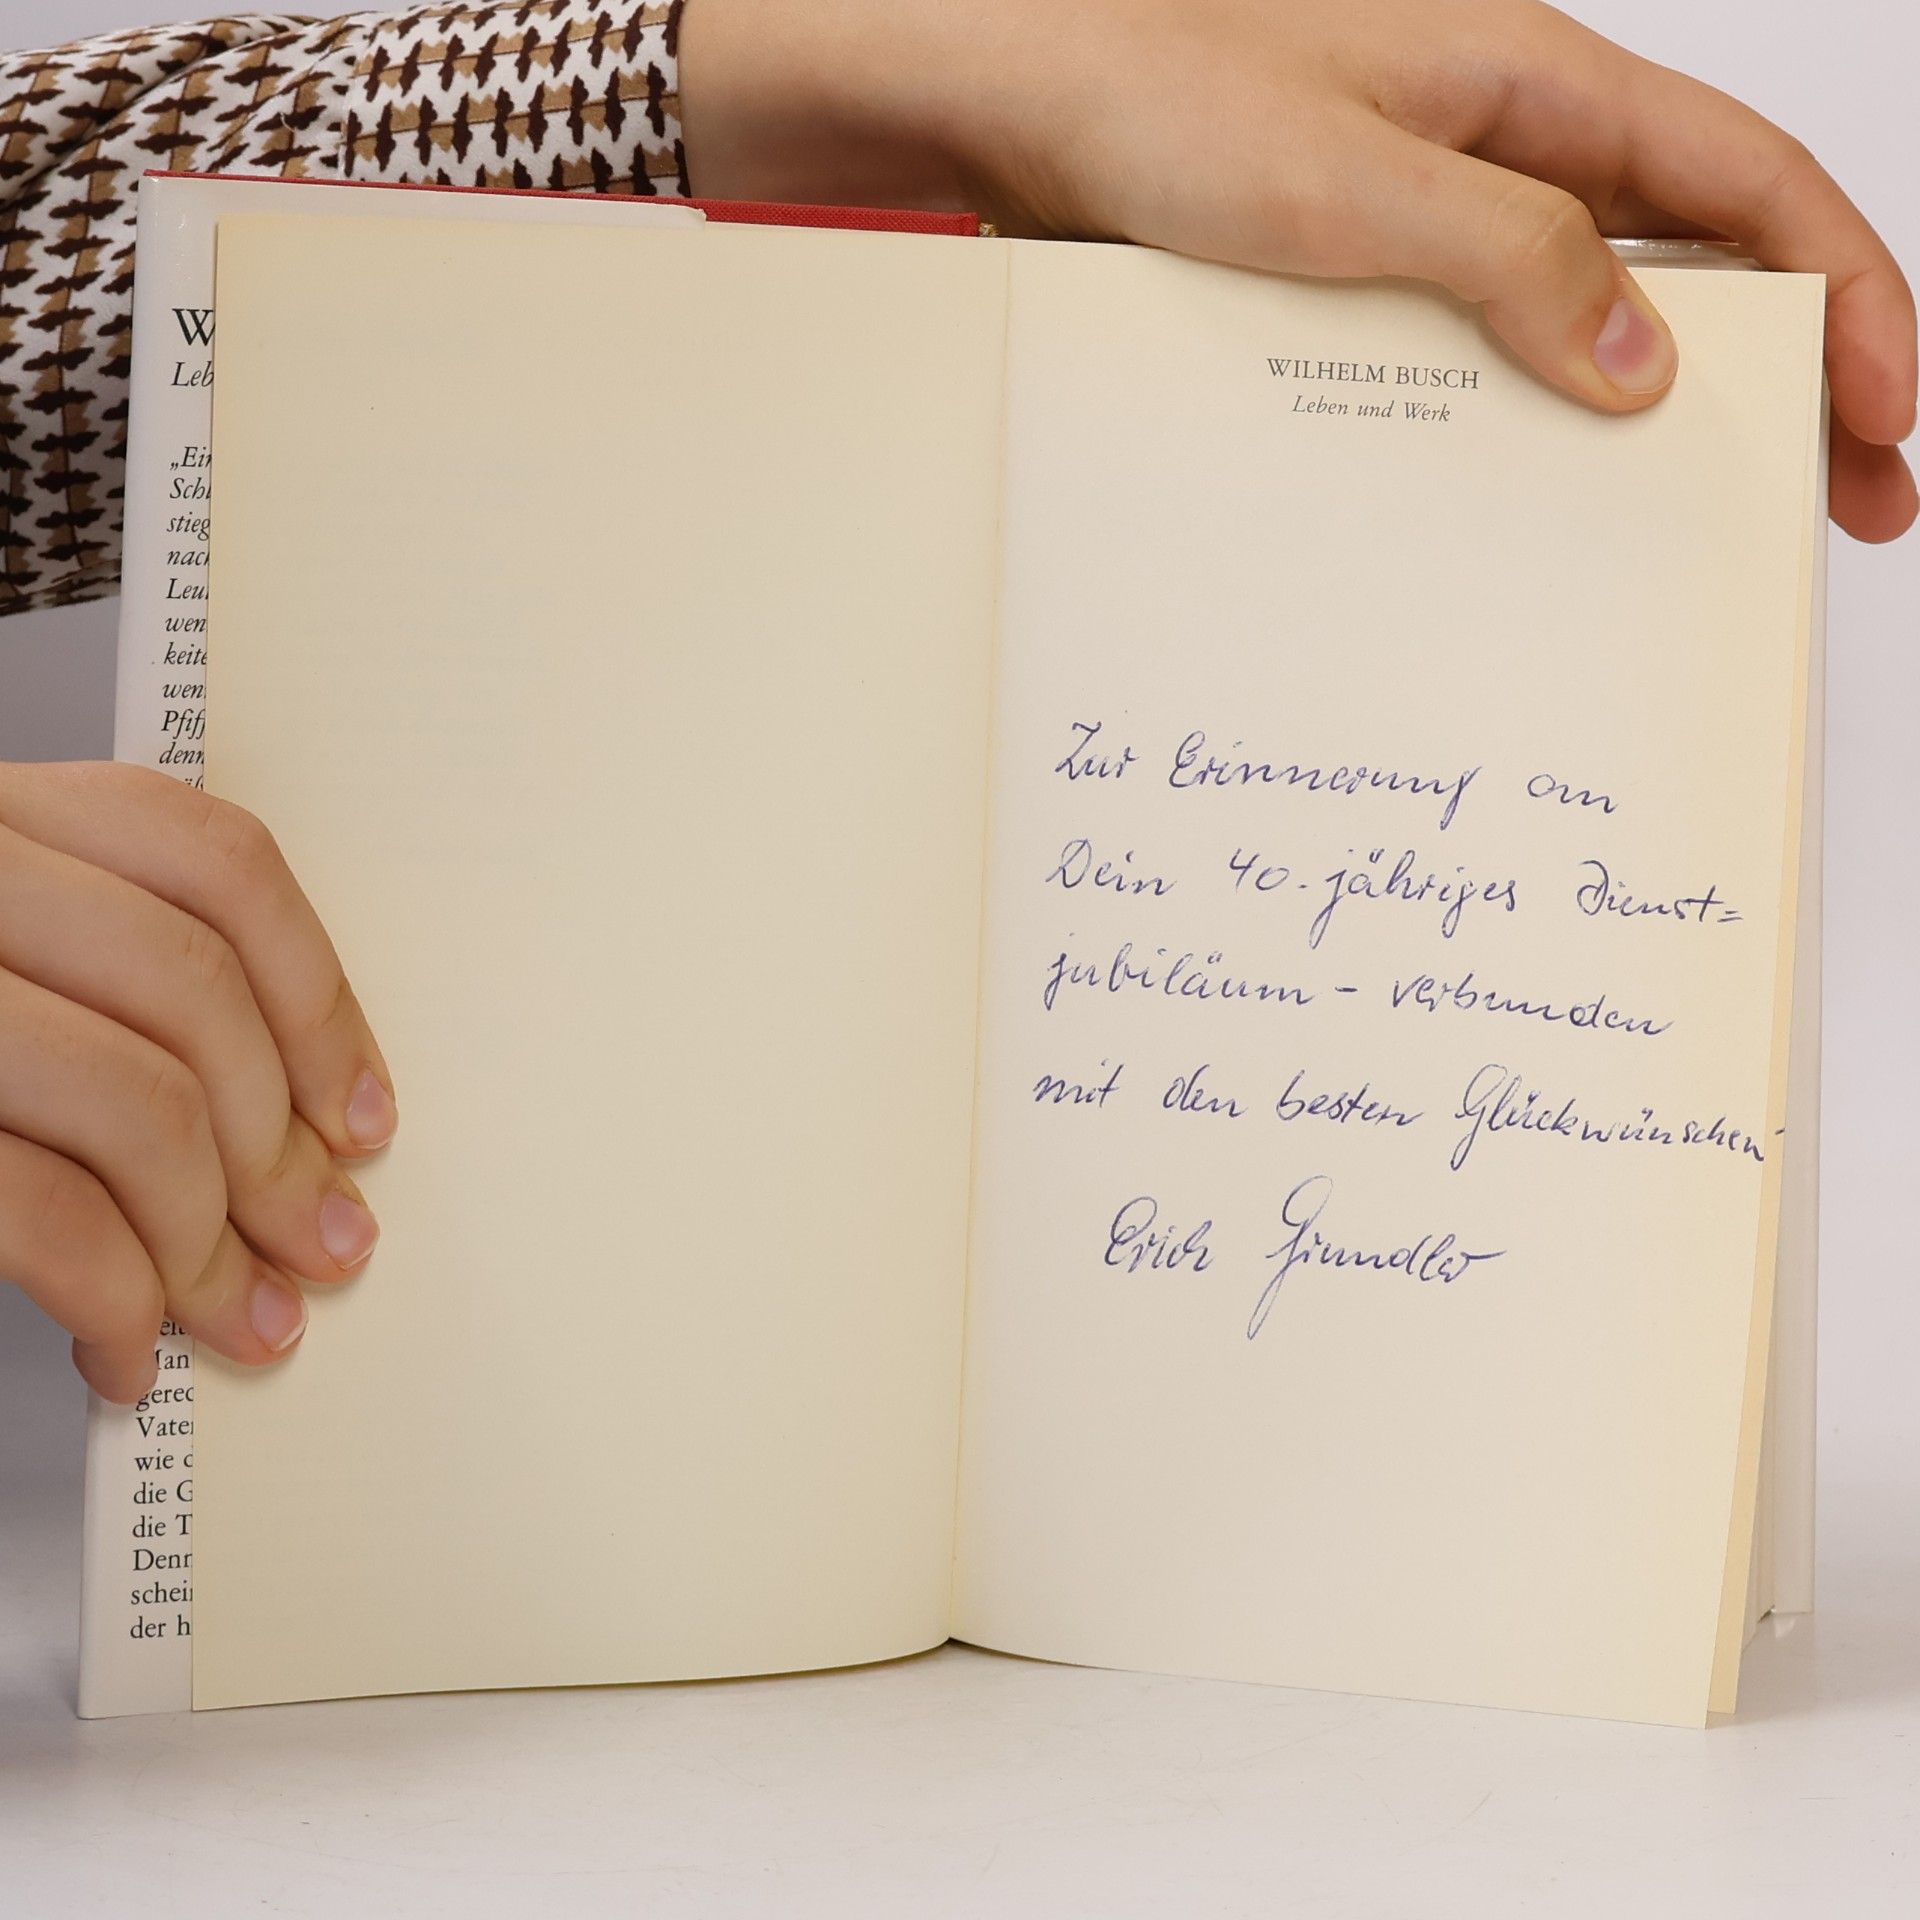 W
Leb
„Ein
Schl
stieg
nach
Leu
wen
keite
wen
Pfiff
denn
Man
gerec
Vater
wie d
die G
die T
Denn
schein
der h
WILHELM BUSCH
Leben und Werk
Zur Erinnerung an
Dein 40.jähriges Dienst=
jubiläum - verbunden
mit den besten Glückwünschen
Erich Grundler